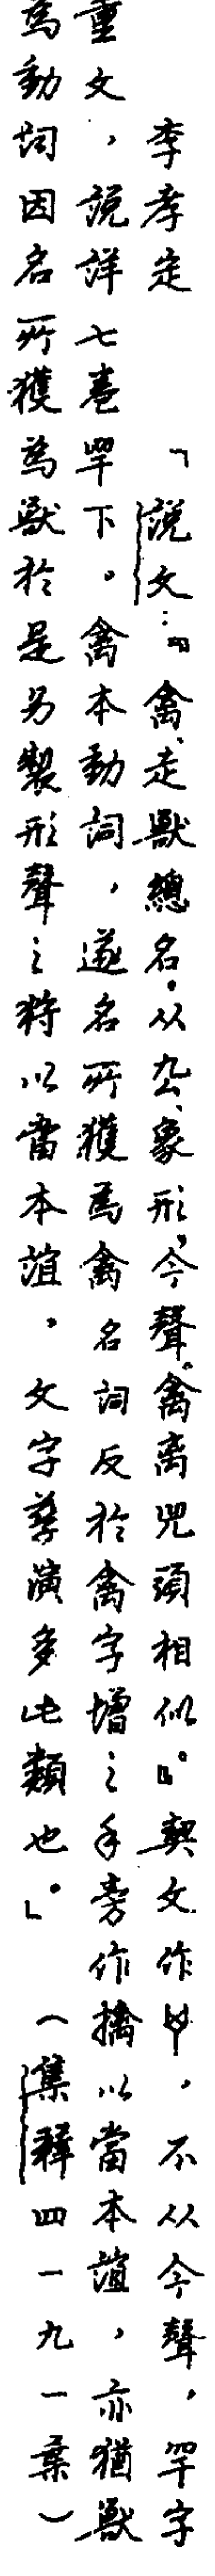 李孝定　「說文：『禽、走獸總名。从厹、象形，今聲。禽离兕頭相似。』契文作，不从今聲，𦋹字
重文，說詳七卷𦋹下。禽本動詞，遂名所獲為禽名詞反於禽字增之手旁作擒以當本誼，亦猶獸
為動詞因名所獲為獸於是另製形聲之狩以當本誼。文字孳演多此類也。」　（集釋四一九一葉）